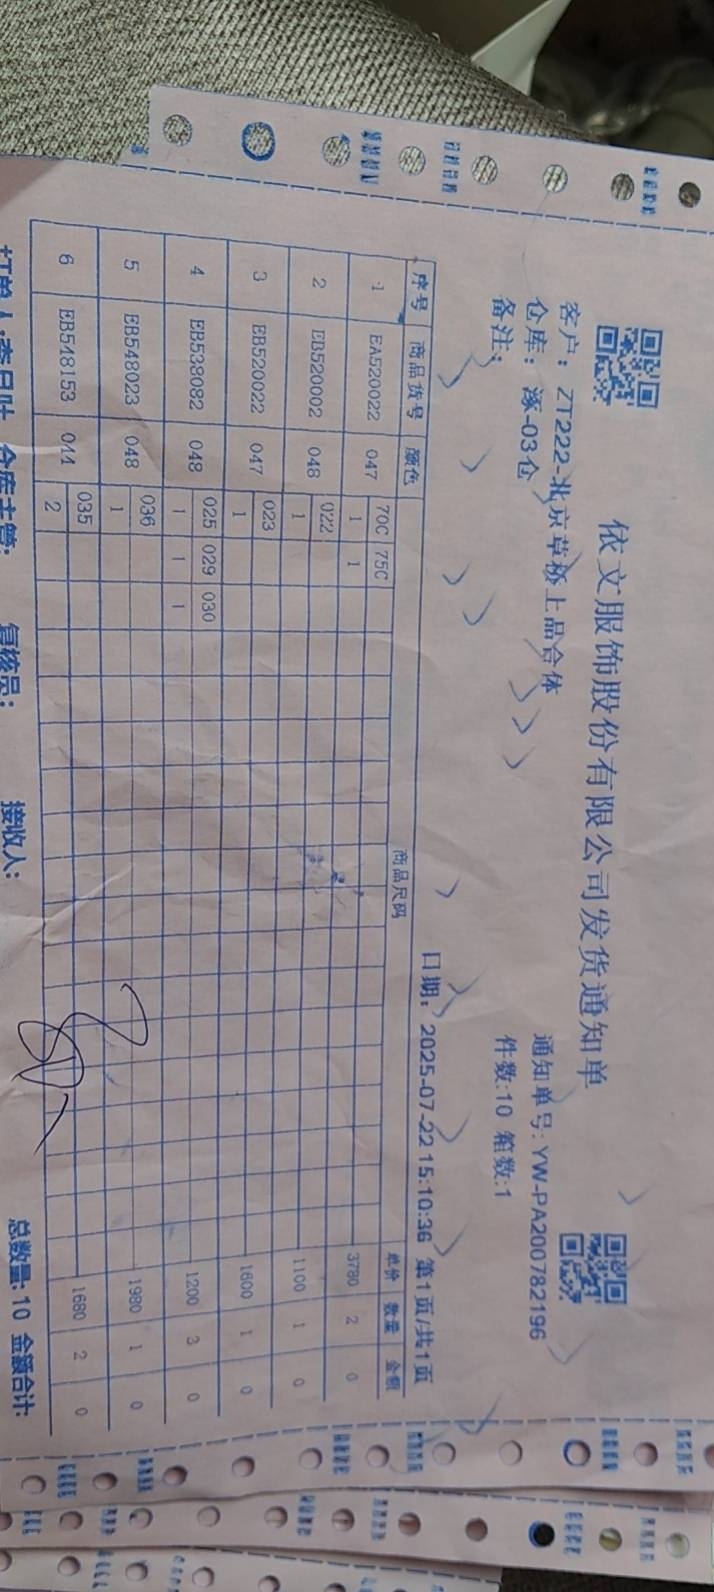 依文服饰股份有限公司发货通知单
客户：ZT222-北京草桥上品合体
通知单号: YW-PA200782196
仓库：涿-03仓
件数:10 箱数:1
备注：
日期：2025-07-22 15:10:36 第1页/共1页
序号 商品货号 颜色 商品尺码 单价 数量 金额
1 EA520022 047 70C 75C 3780 2 0
1 1
2 EB520002 048 022 1100 1 0
1
3 EB520022 047 023 1600 1 0
1
4 EB538082 048 025 029 030 1200 3 0
1 1 1
5 EB548023 048 036 1980 1 0
1
6 EB548153 044 035 1680 2 0
2
总数量: 10 金额合计:
仓库主管: 复核员: 接收人: